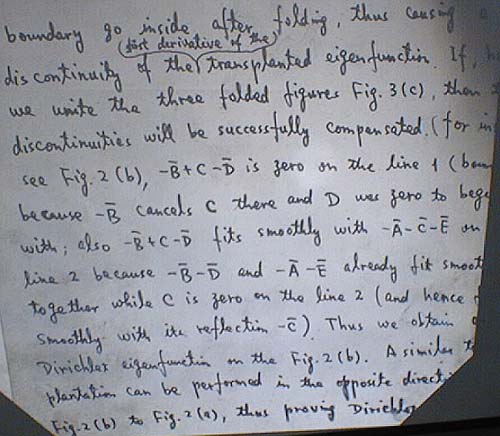 boundary go inside after folding, thus causing a
(first derivative of the)
discontinuity of the transplanted eigenfunction. If,
we unite the three folded figures Fig. 3(c), then
discontinuities will be successfully compensated. (for in
see Fig. 2 (b), -B̄ + C - D̄ is zero on the line 1 (boun
because -B̄ cancels C there and D was zero to bege
with; also -B̄+C-D̄ fits smoothly with -Ā-C̄-Ē on
line 2 because -B̄-D̄ and -Ā-Ē already fit smoot
together while C is zero on the line 2 (and hence
smoothly with its reflection -C̄). Thus we obtain
Dirichlet eigenfunction on the Fig. 2(b). A similar t
plantation can be performed in the opposite directi
Fig. 2(b) to Fig. 2(a), thus proving Dirichle